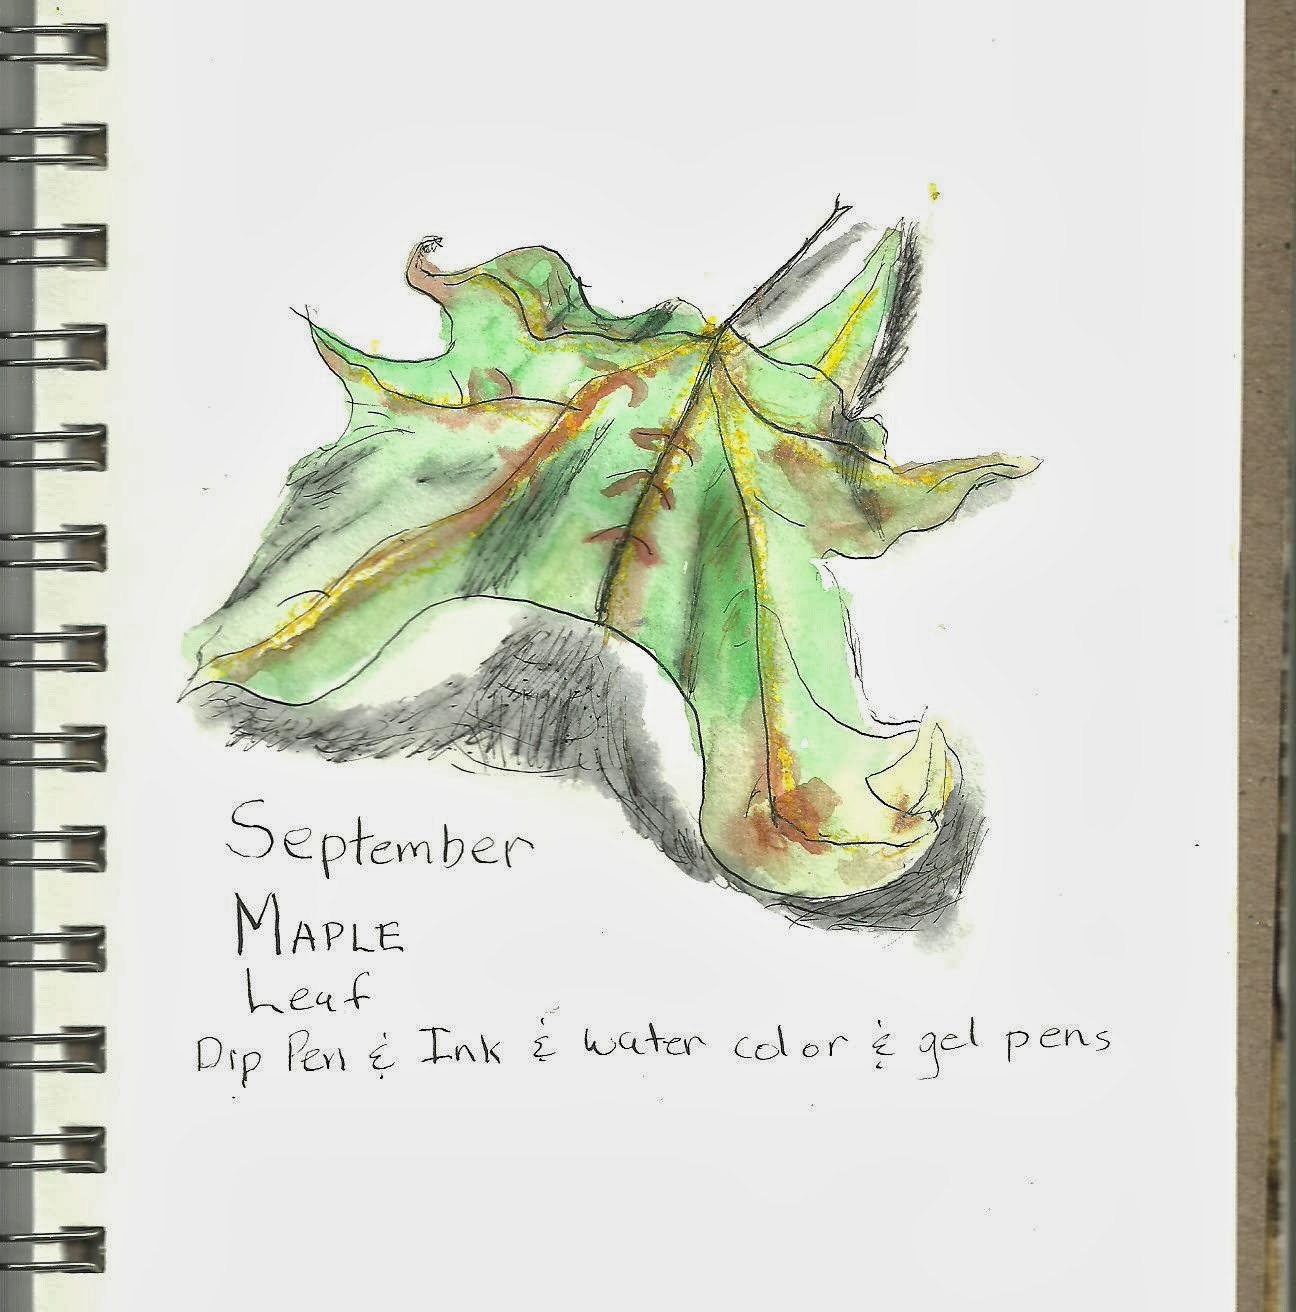 September
MAPLE
Leaf
Dip Pen & Ink & water color & gel pens